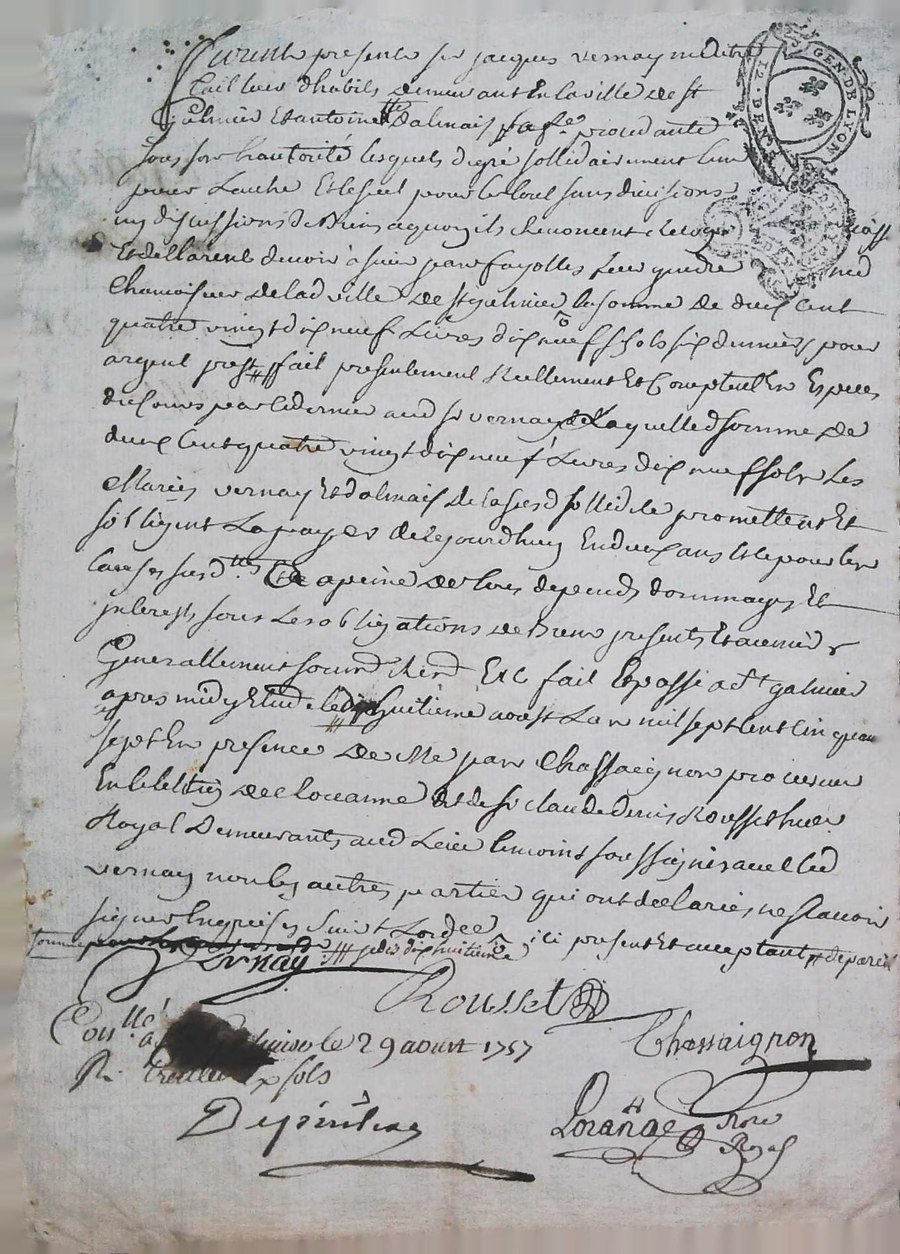 GEN. DE LYON
12. DEN
Furent presents sr jacques vernay maitre
Tailleur dhabits demeurant En la ville de st
Galmier Et antoinette Dalmais sa fe procedante
sous son hautorité lesquels de gré sollidairement lun
pour Lautre Et le seul pour le tout sans divisions
ny discussions de Biens a quoy ils Renoncent
Et declarent devoir à sieur jean fayolles Leur gendre
Chamoiseur de lad ville de st galmier la somme de deux Cent
quatre vingt dix neuf Livres dix neuf sols six deniers pour
argent prest fait presentement Reellement Et Comptent En Especes
du Cours par le dernier aud sr vernay de Laquelle d somme de
deux Cent quatre vingt dix neuf Livres dix neuf sols Les
Mariés vernay Et dalmais de la susd sollidité promettent Et
sobligent La payer de Ce jourdhuy En deux ans Et pour les
causes susd tes a peine de tous depends dommages Et
jnterests sous Les obligations de Biens presents Et avenir &
Generallement soumd Rend Etc fait Et passé a st galmier
apres midy Etude le dix huitieme aoust Lan mil sept cent cinquante
sept En presence de Me jean Chassaignon procureur
En lelection de Roanne Et de sr claude denis Rousset huier
Royal Demeurants aud Lieu temoins soussignés avec led
vernay non les autres parties qui ont declaré ne scavoir
signer Enquises Suivt Lordce
jeudis dix huitieme ici present Et acceptant de pareil
Vernay
Rousset
Chassaignon
Coullé
a le 29 aoust 1757
R. sols
Depinteau
Lorange Nore
Royal